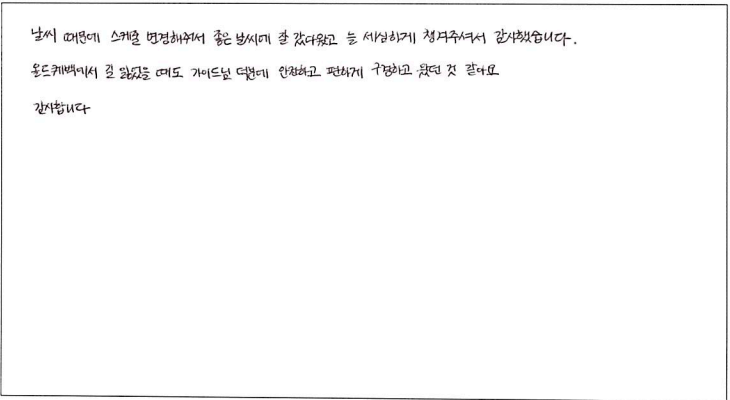 날씨 때문에 스케줄 변경해줘서 좋은 날씨에 잘 갔다왔고 늘 세심하게 챙겨주셔서 감사했습니다.
올드퀘백에서 길 잃었을 때도 가이드님 덕분에 안전하고 편하게 구경하고 왔던 것 같아요
감사합니다